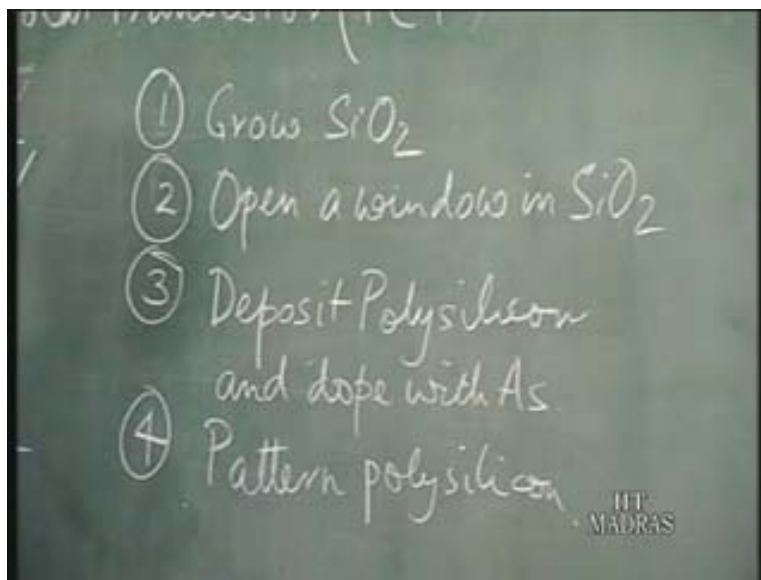 ① Grow SiO₂
② Open a window in SiO₂
③ Deposit Polysilicon
and dope with As
④ Pattern polysilicon
IIT
MADRAS